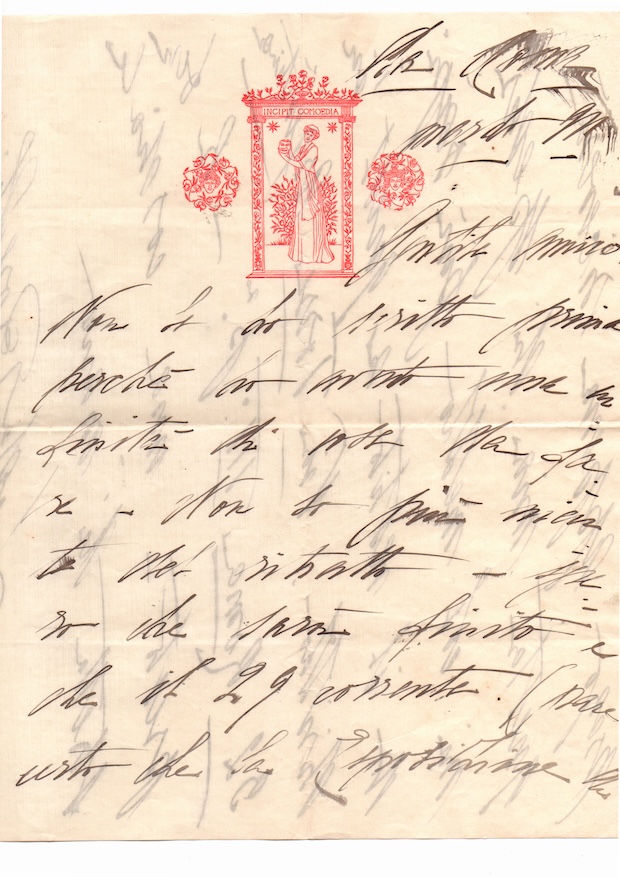 INCIPIT COMOEDIA
Roma
Gentile amico
Non le ho scritto prima
perchè ho avuto una in
finità di cose da fa
re - Non so più nien
te del ritratto - spe
ro che sarà finito e
che il 29 corrente
certo che la Esposizione